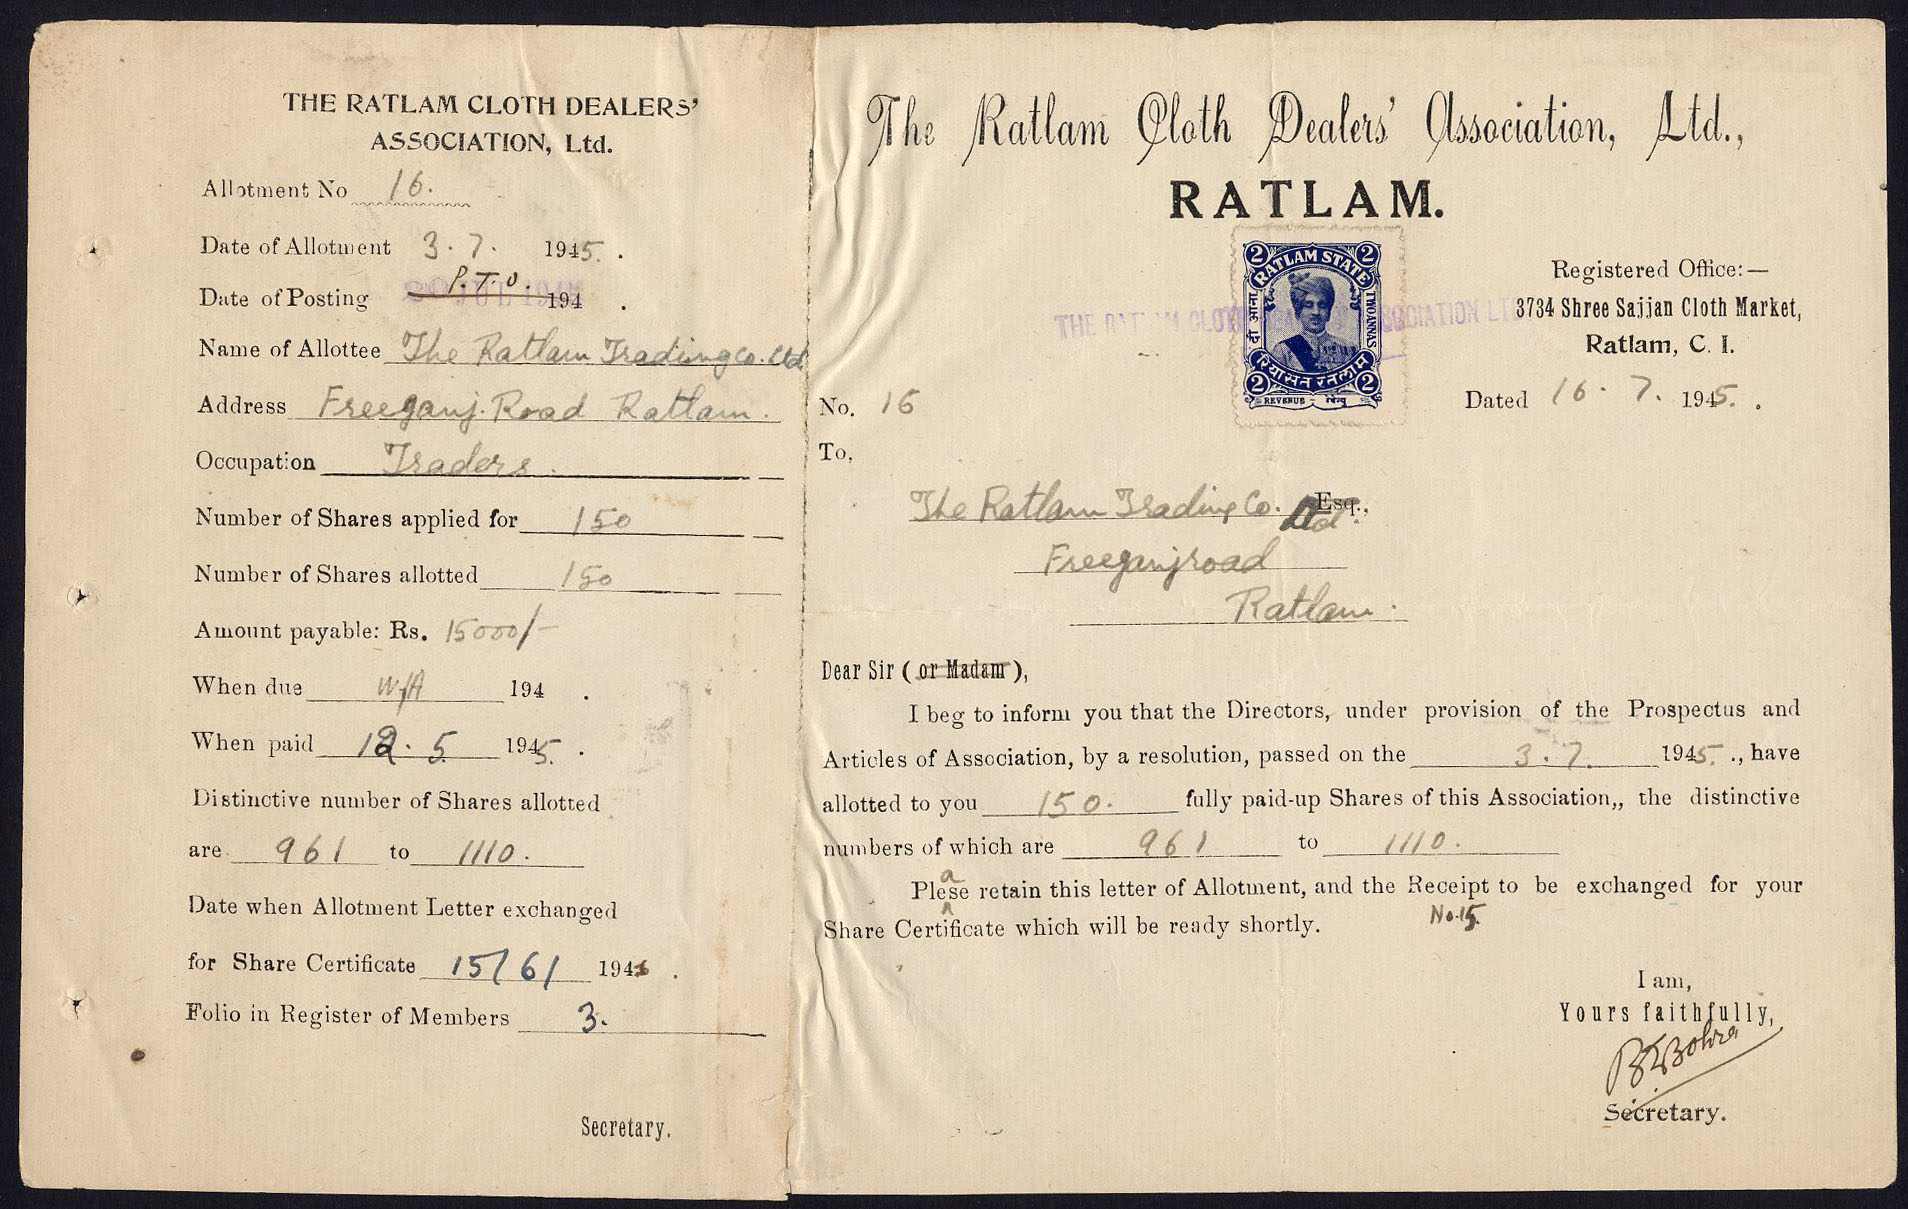 THE RATLAM CLOTH DEALERS'
ASSOCIATION, Ltd.
Allotment No 16.
Date of Allotment 3.7. 1945.
P.T.O.
Date of Posting JUL 194 .
Name of Allottee The Ratlam Trading Co. Ltd
Address Freeganj. Road Ratlam.
Occupation Traders.
Number of Shares applied for 150
Number of Shares allotted 150
Amount payable: Rs. 15000/-
When due 194 .
When paid 12.5 1945.
Distinctive number of Shares allotted
are 961 to 1110.
Date when Allotment Letter exchanged
for Share Certificate 15/6/ 194 .
Folio in Register of Members 3.
Secretary.
The Ratlam Cloth Dealers' Association, Ltd.,
RATLAM.
2 RATLAM STATE 2
दो आना
TWO ANNAS
2 रियासत रतलाम 2
REVENUE
THE CLOTH ASSOCIATION
Registered Office:—
3734 Shree Sajjan Cloth Market,
Ratlam, C. I.
No. 16
Dated 16.7. 1945. .
To,
The Ratlam Trading Co. Ltd. Esq.,
Freeganj road
Ratlam.
Dear Sir ( or Madam ),
I beg to inform you that the Directors, under provision of the Prospectus and
Articles of Association, by a resolution, passed on the 3.7. 1945 ., have
allotted to you 150. fully paid-up Shares of this Association,, the distinctive
numbers of which are 961 to 1110.
Please retain this letter of Allotment, and the Receipt to be exchanged for your
No.15.
Share Certificate which will be ready shortly.
I am,
Yours faithfully,
Bohra
Secretary.